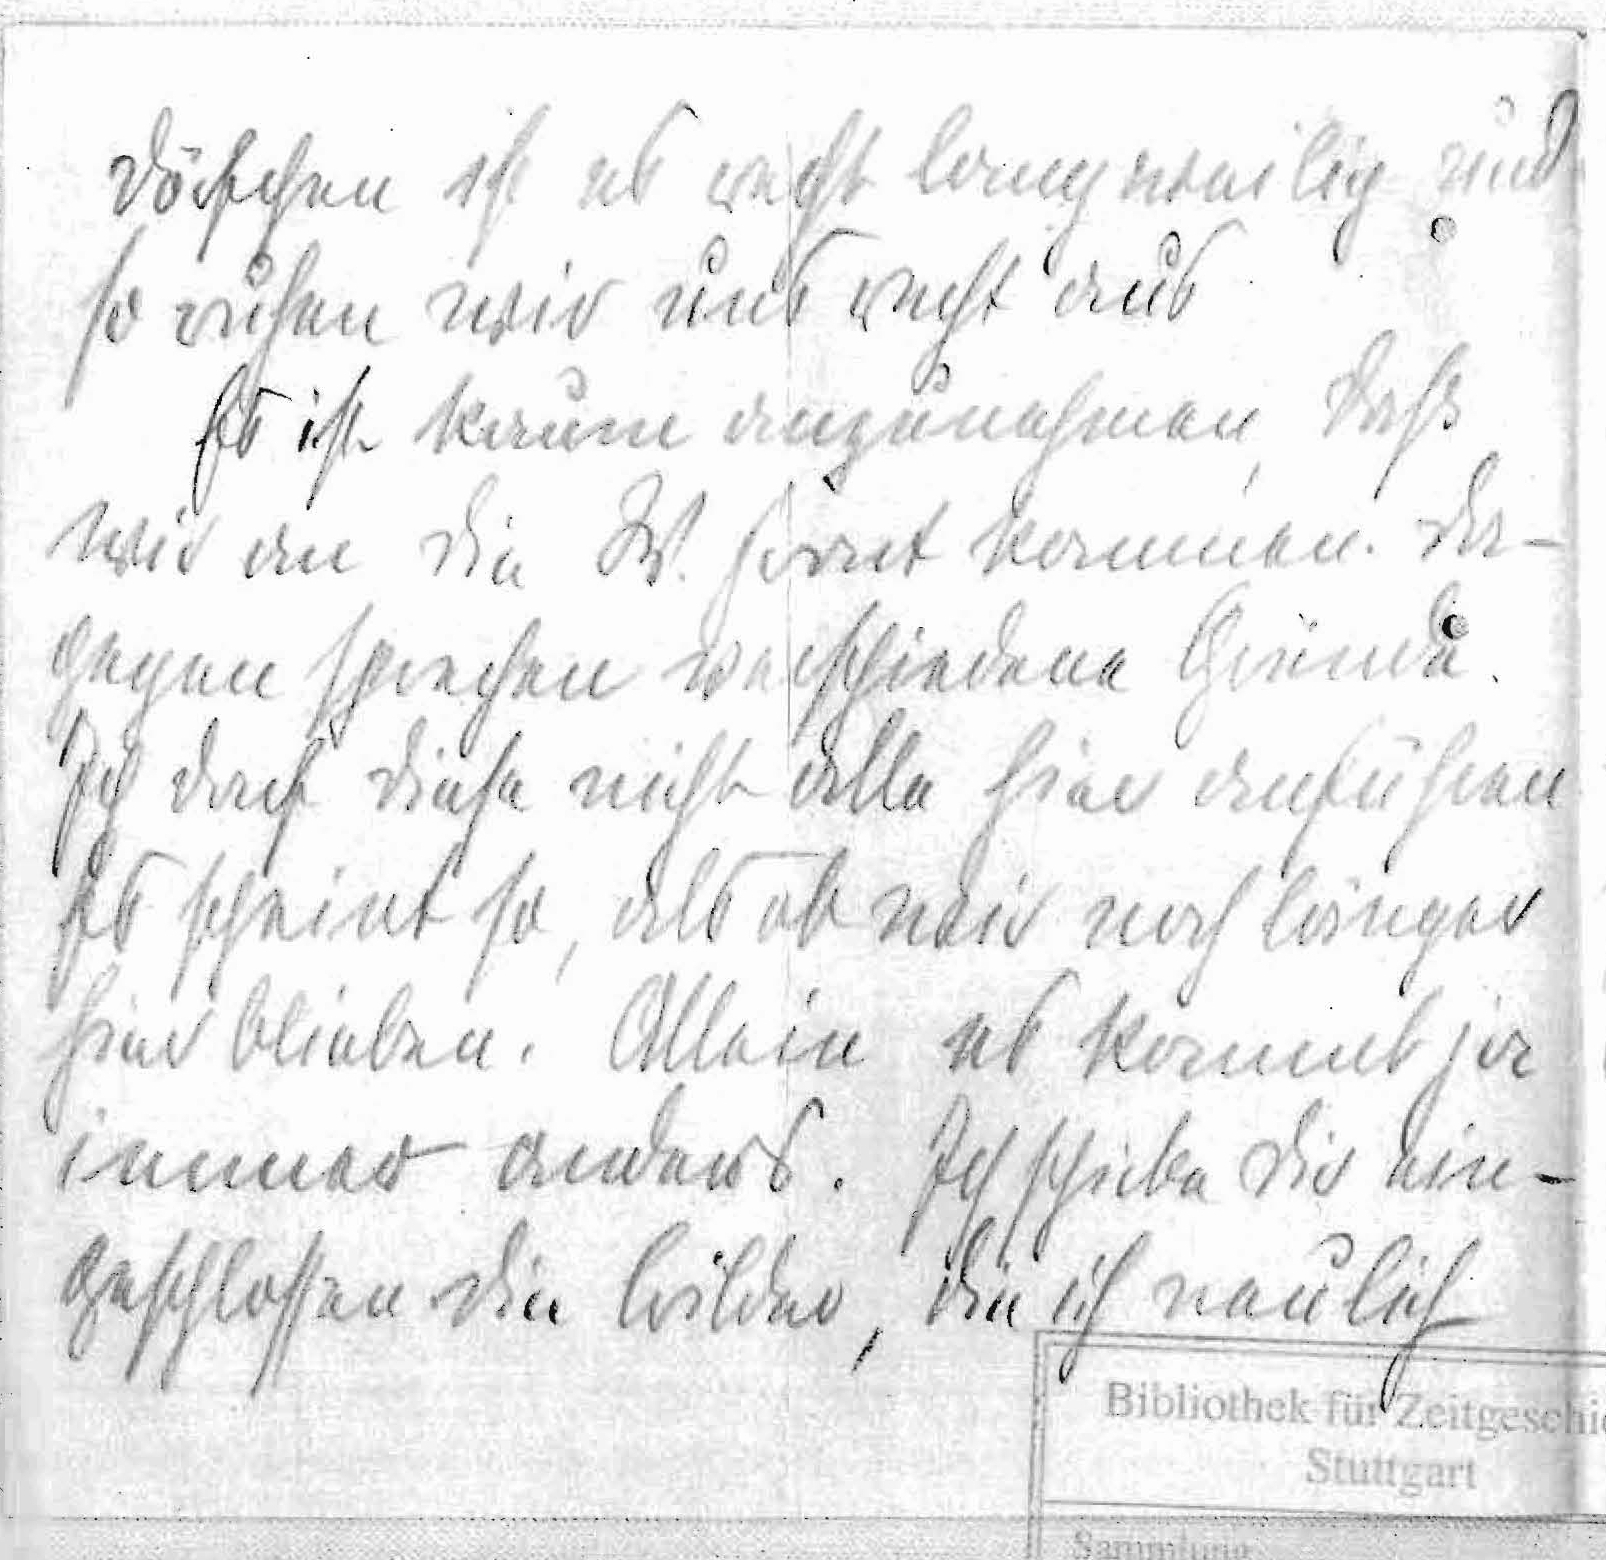 Dörfchen ist es recht langweilig und
so ruhen wir uns recht aus
Es ist kaum anzunehmen, daß
wir an die W. front kommen. Da-
gegen sprechen verschiedene Gründe.
Ich darf diese nicht alle hier anführen
Es scheint so, als ob wir noch länger
hier blieben. Allein es kommt ja
immer anders. Ich schicke dir ein-
geschlossen die Bilder, die ich neulich
Bibliothek für Zeitgeschic
Stuttgart
Sammlung